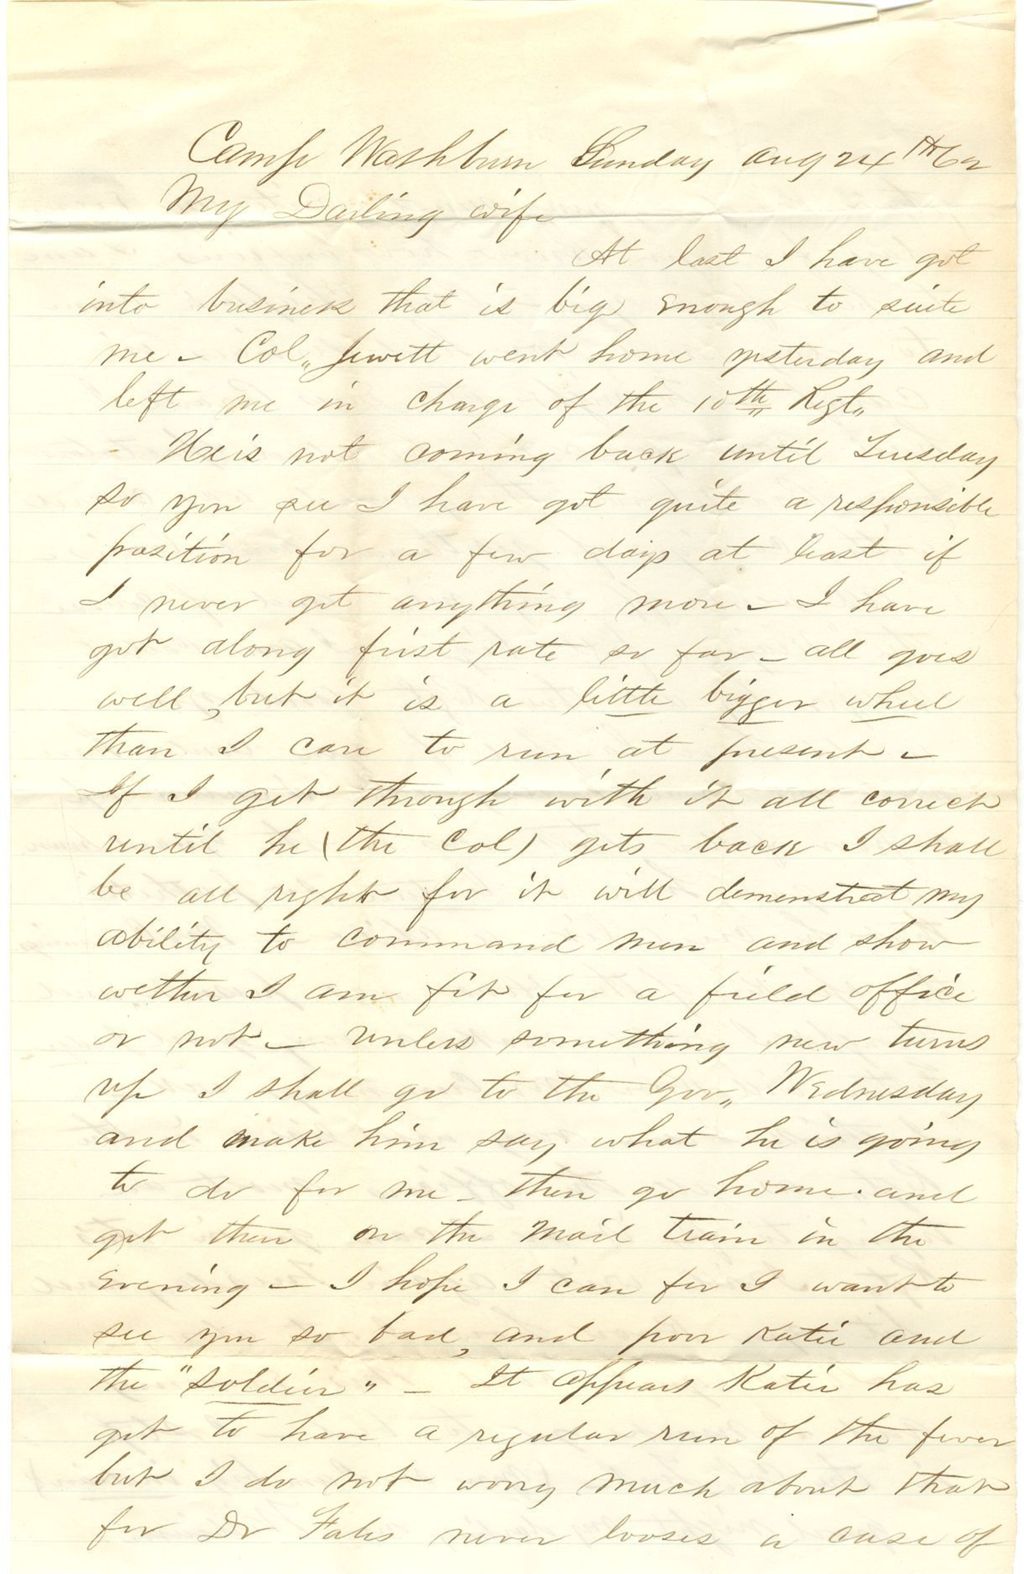 Camp Washburn Sunday Aug 24th 62
My Darling wife
At last I have got
into business that is big enough to suite
me - Col,, Jewett went home yesterday and
left me in charge of the 10th Regt,,
He is not coming back until Tuesday
so you see I have got quite a responsible
position for a few days at least if
I never get anything more - I have
got along first rate so far - all goes
well, but it is a little bigger wheel
than I care to run at present -
If I get through with it all correct
until he (the Col) gets back I shall
be all right for it will demenstrat my
ability to command men and show
wether I am fit for a field office
or not - unless something new turns
up I shall go to the Gov,, Wednesday
and make him say what he is going
to do for me - then go home and
get there on the Mail train in the
Evening - I hope I can for I want to
see you so bad, and poor Katie and
the "Soldier" - It appears Katie has
got to have a regular run of the fever
but I do not worry much about that
for Dr never looses a case of